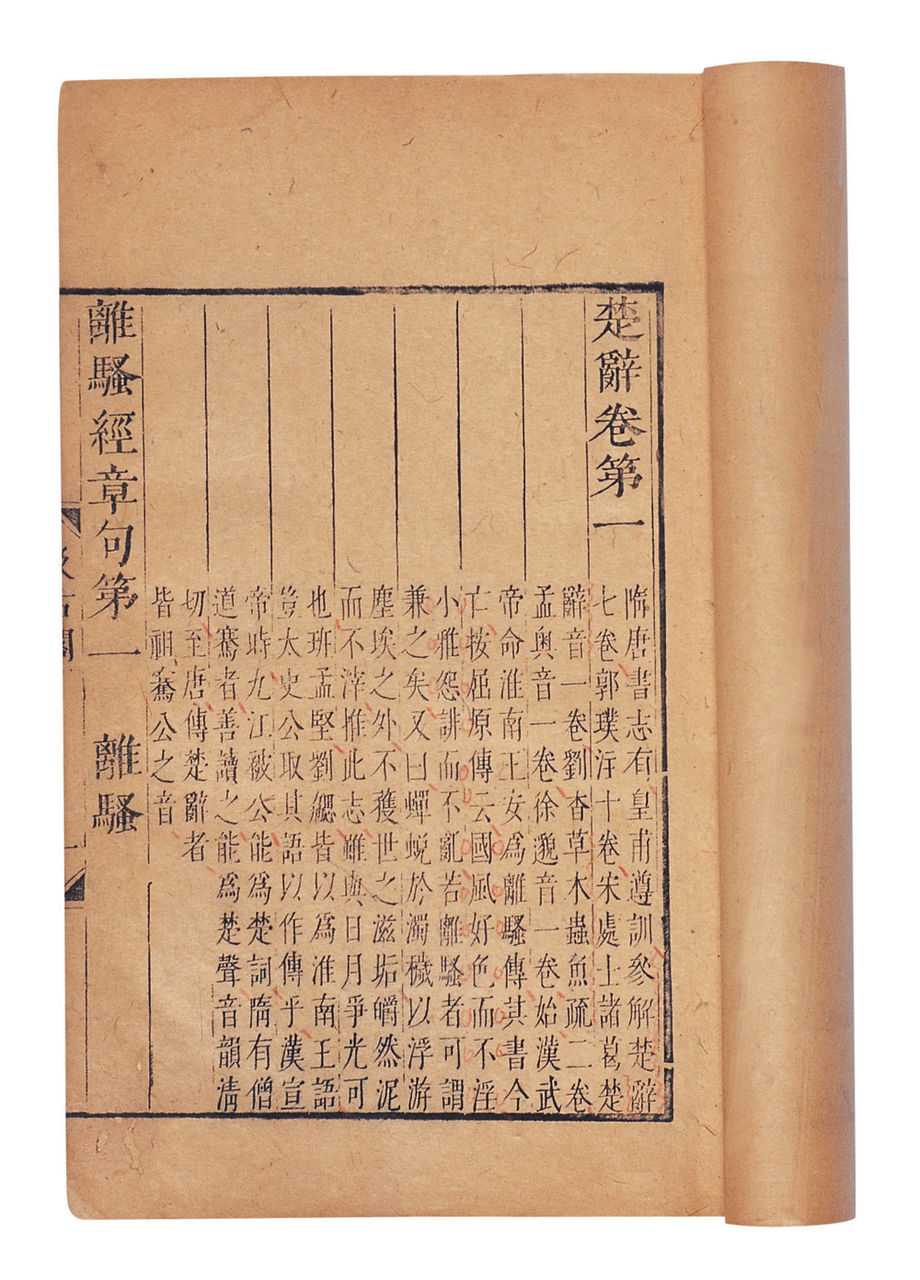 楚辭卷第一
隋唐書志有皇甫遵訓參解楚辭
七卷郭璞注十卷宋處士諸葛楚
辭音一卷劉杳草木蟲魚疏二卷
孟奧音一卷徐邈音一卷始漢武
帝命淮南王安爲離騷傳其書今
亡按屈原傳云國風好色而不淫
小雅怨誹而不亂若離騷者可謂
兼之矣又曰蟬蛻於濁穢以浮游
塵埃之外不獲世之滋垢皭然泥
而不滓推此志雖與日月爭光可
也班孟堅劉勰皆以爲淮南王語
豈太史公取其語以作傳乎漢宣
帝時九江被公能爲楚詞隋有僧
道騫者善讀之能爲楚聲音韻清
切至唐傳楚辭者
皆祖騫公之音
離騷經章句第一 離騷